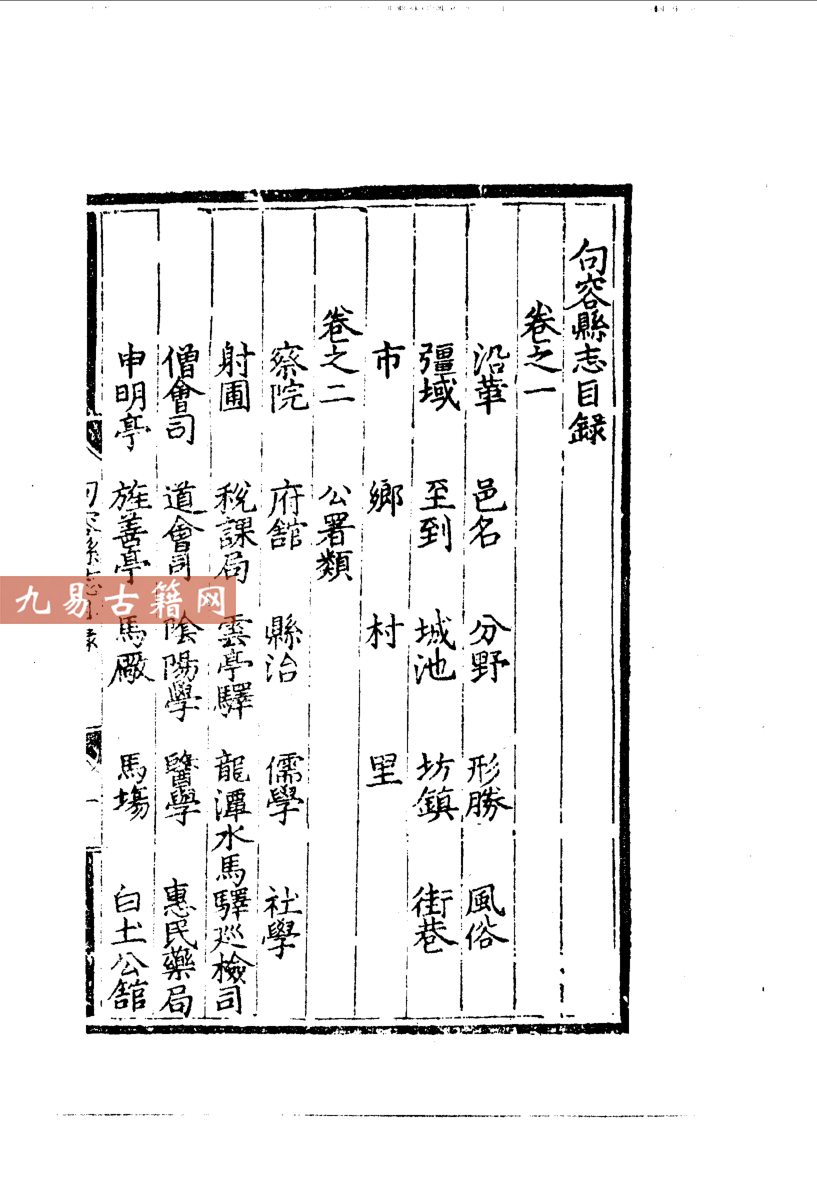 句容縣志目録
卷之一
沿革 邑名 分野 形勝 風俗
彊域 至到 城池 坊鎮 街巷
市 鄉 村 里
卷之二 公署類
察院 府舘 縣治 儒學 社學
射圃 稅課局 雲亭驛 龍潭水馬驛巡檢司
僧會司 道會司 陰陽學 醫學 惠民藥局
申明亭 旌善亭 馬廠 馬場 白土公舘
句容縣志目录 一
九易古籍网